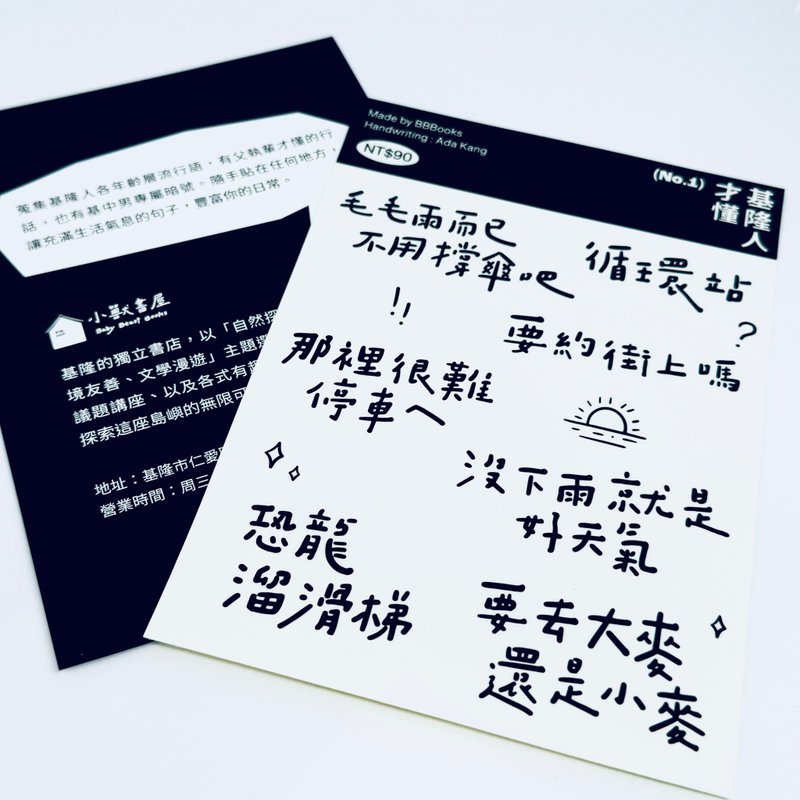 蒐集基隆人各年齡層流行語，有父執輩才懂的行
話，也有基中男專屬暗號。隨手貼在任何地方，
讓充滿生活氣息的句子，豐富你的日常。
小獸書屋
Baby Beast Books
基隆的獨立書店，以「自然探
境友善、文學漫遊」主題選
議題講座、以及各式有趣
探索這座島嶼的無限可
地址：基隆市仁愛
營業時間：周三
Made by BBBooks
Handwriting : Ada Kang
NT$90
(No.1)
基隆人
才懂
毛毛雨而已
不用撐傘吧
!!
循環站
要約街上嗎
?
那裡很難
停車ㄟ
沒下雨就是
好天氣
恐龍
溜滑梯
要去大麥
還是小麥